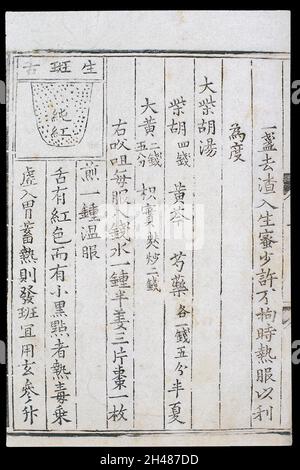 一盞去渣入生蜜少許不拘時熱服以利
為度
大柴胡湯
柴胡四錢 黃芩 芍藥各一錢五分 半夏
大黃二錢五分 枳實麸炒二錢
右㕮咀每服八錢水一鍾半姜三片棗一枚
煎一鍾温服
生斑舌
純紅
舌有紅色而有小黑點者熱毒乗
虚入胃蓄熱則發斑宜用玄參升
alamy
Image ID: 2H487DD
www.alamy.com